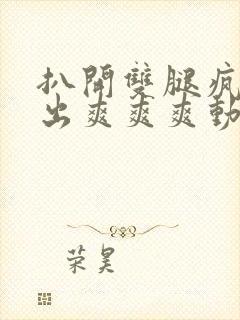 扒開雙腿瘋
出爽爽爽動
荣昊